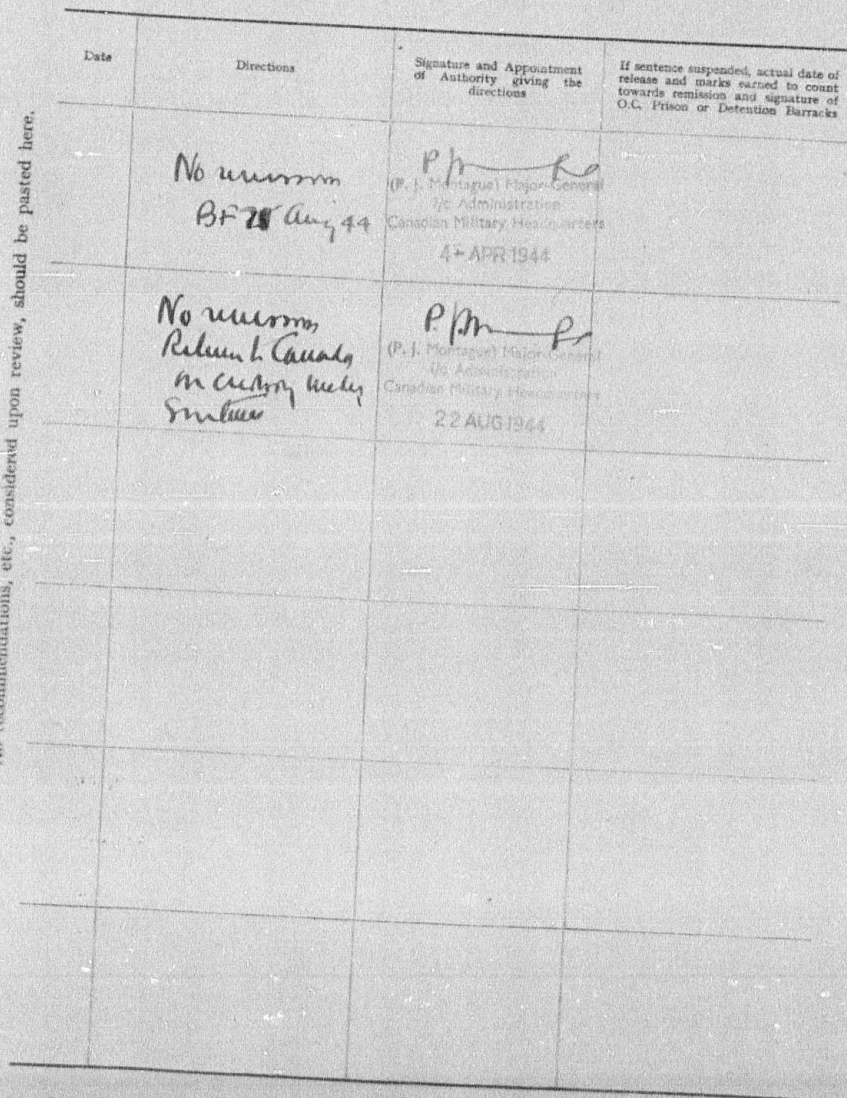 All recommendations, etc., considered upon review, should be pasted here.
Date
Directions
Signature and Appointment
of Authority giving the
directions
If sentence suspended, actual date of
release and marks earned to count
towards remission and signature of
O.C. Prison or Detention Barracks
No remission
BF Aug 44
(P. J. Montague) Major-General
i/c Administration
Canadian Military Headquarters
4 - APR 1944
No remission
Return to Canada
in custody under
Sentence
(P. J. Montague) Major-General
i/c Administration
Canadian Military Headquarters
22 AUG 1944